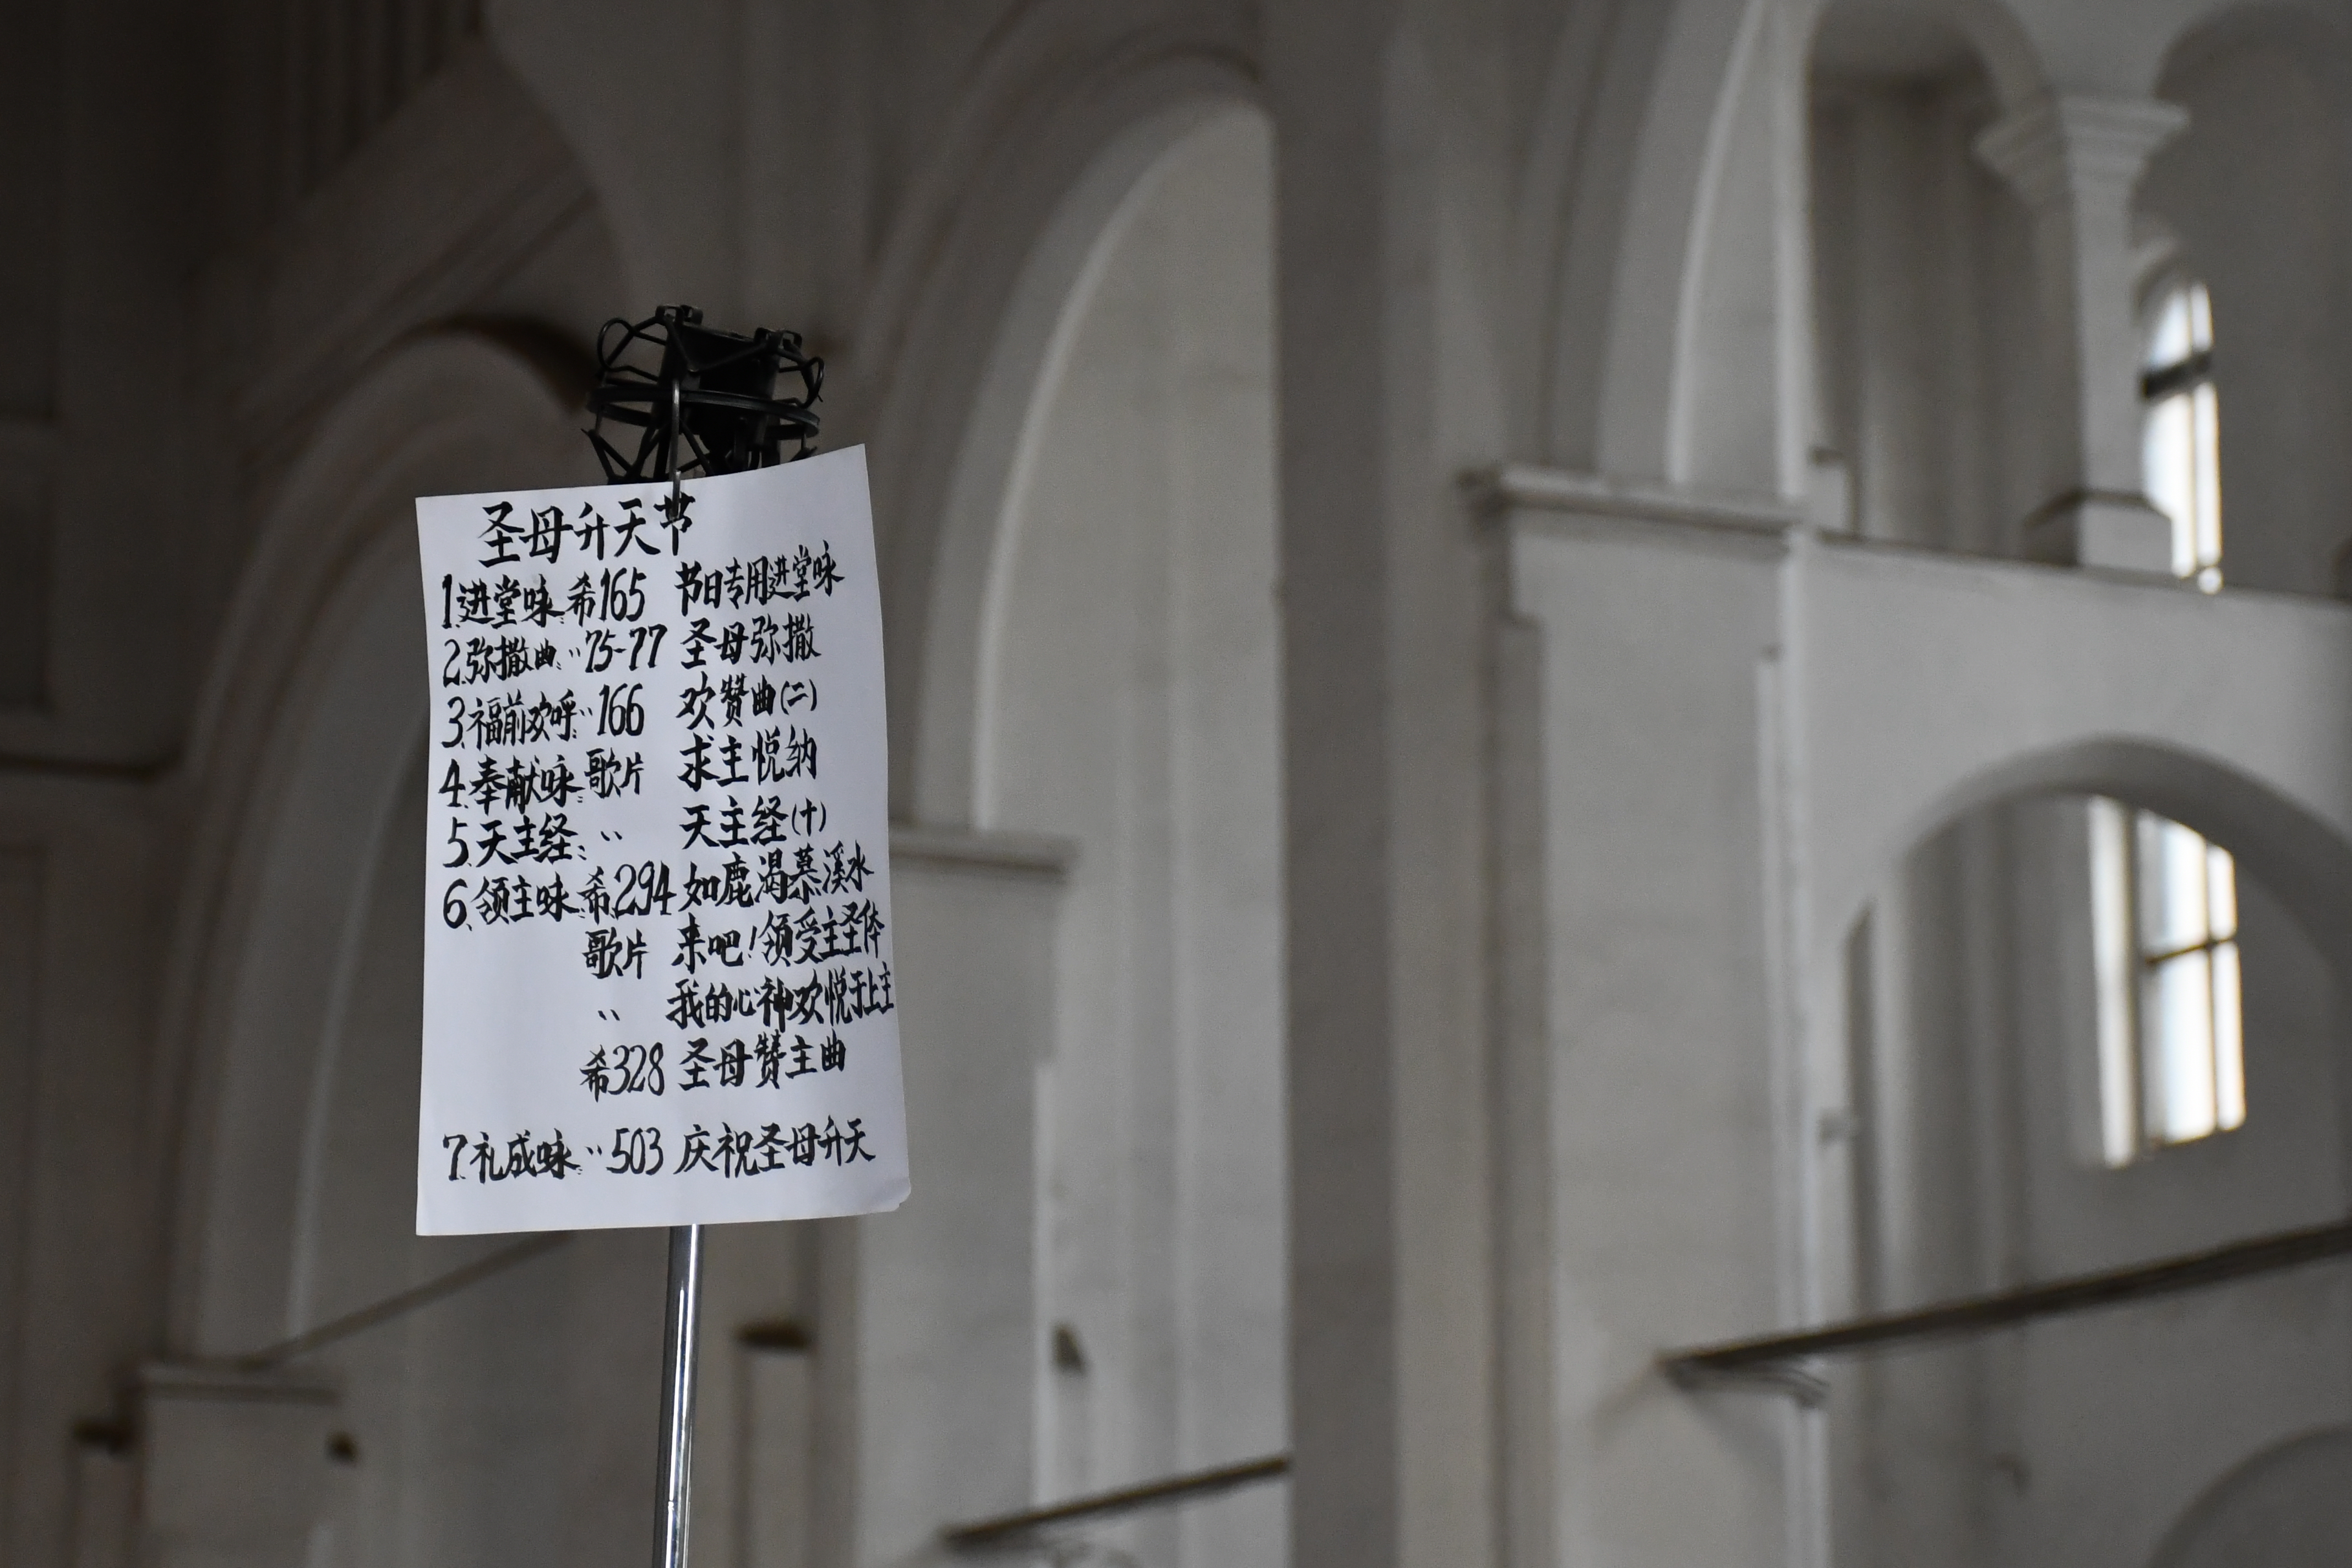 圣母升天节
1.进堂咏:希165 节日专用进堂咏
2.弥撒曲:〃75-77 圣母弥撒
3.福前欢呼:〃166 欢赞曲(二)
4.奉献咏:歌片 求主悦纳
5.天主经:〃 天主经(十)
6.领主咏:希294 如鹿渴慕溪水
歌片 来吧!领受主圣体
〃 我的心神欢悦于上主
希328 圣母赞主曲
7.礼成咏:〃503 庆祝圣母升天